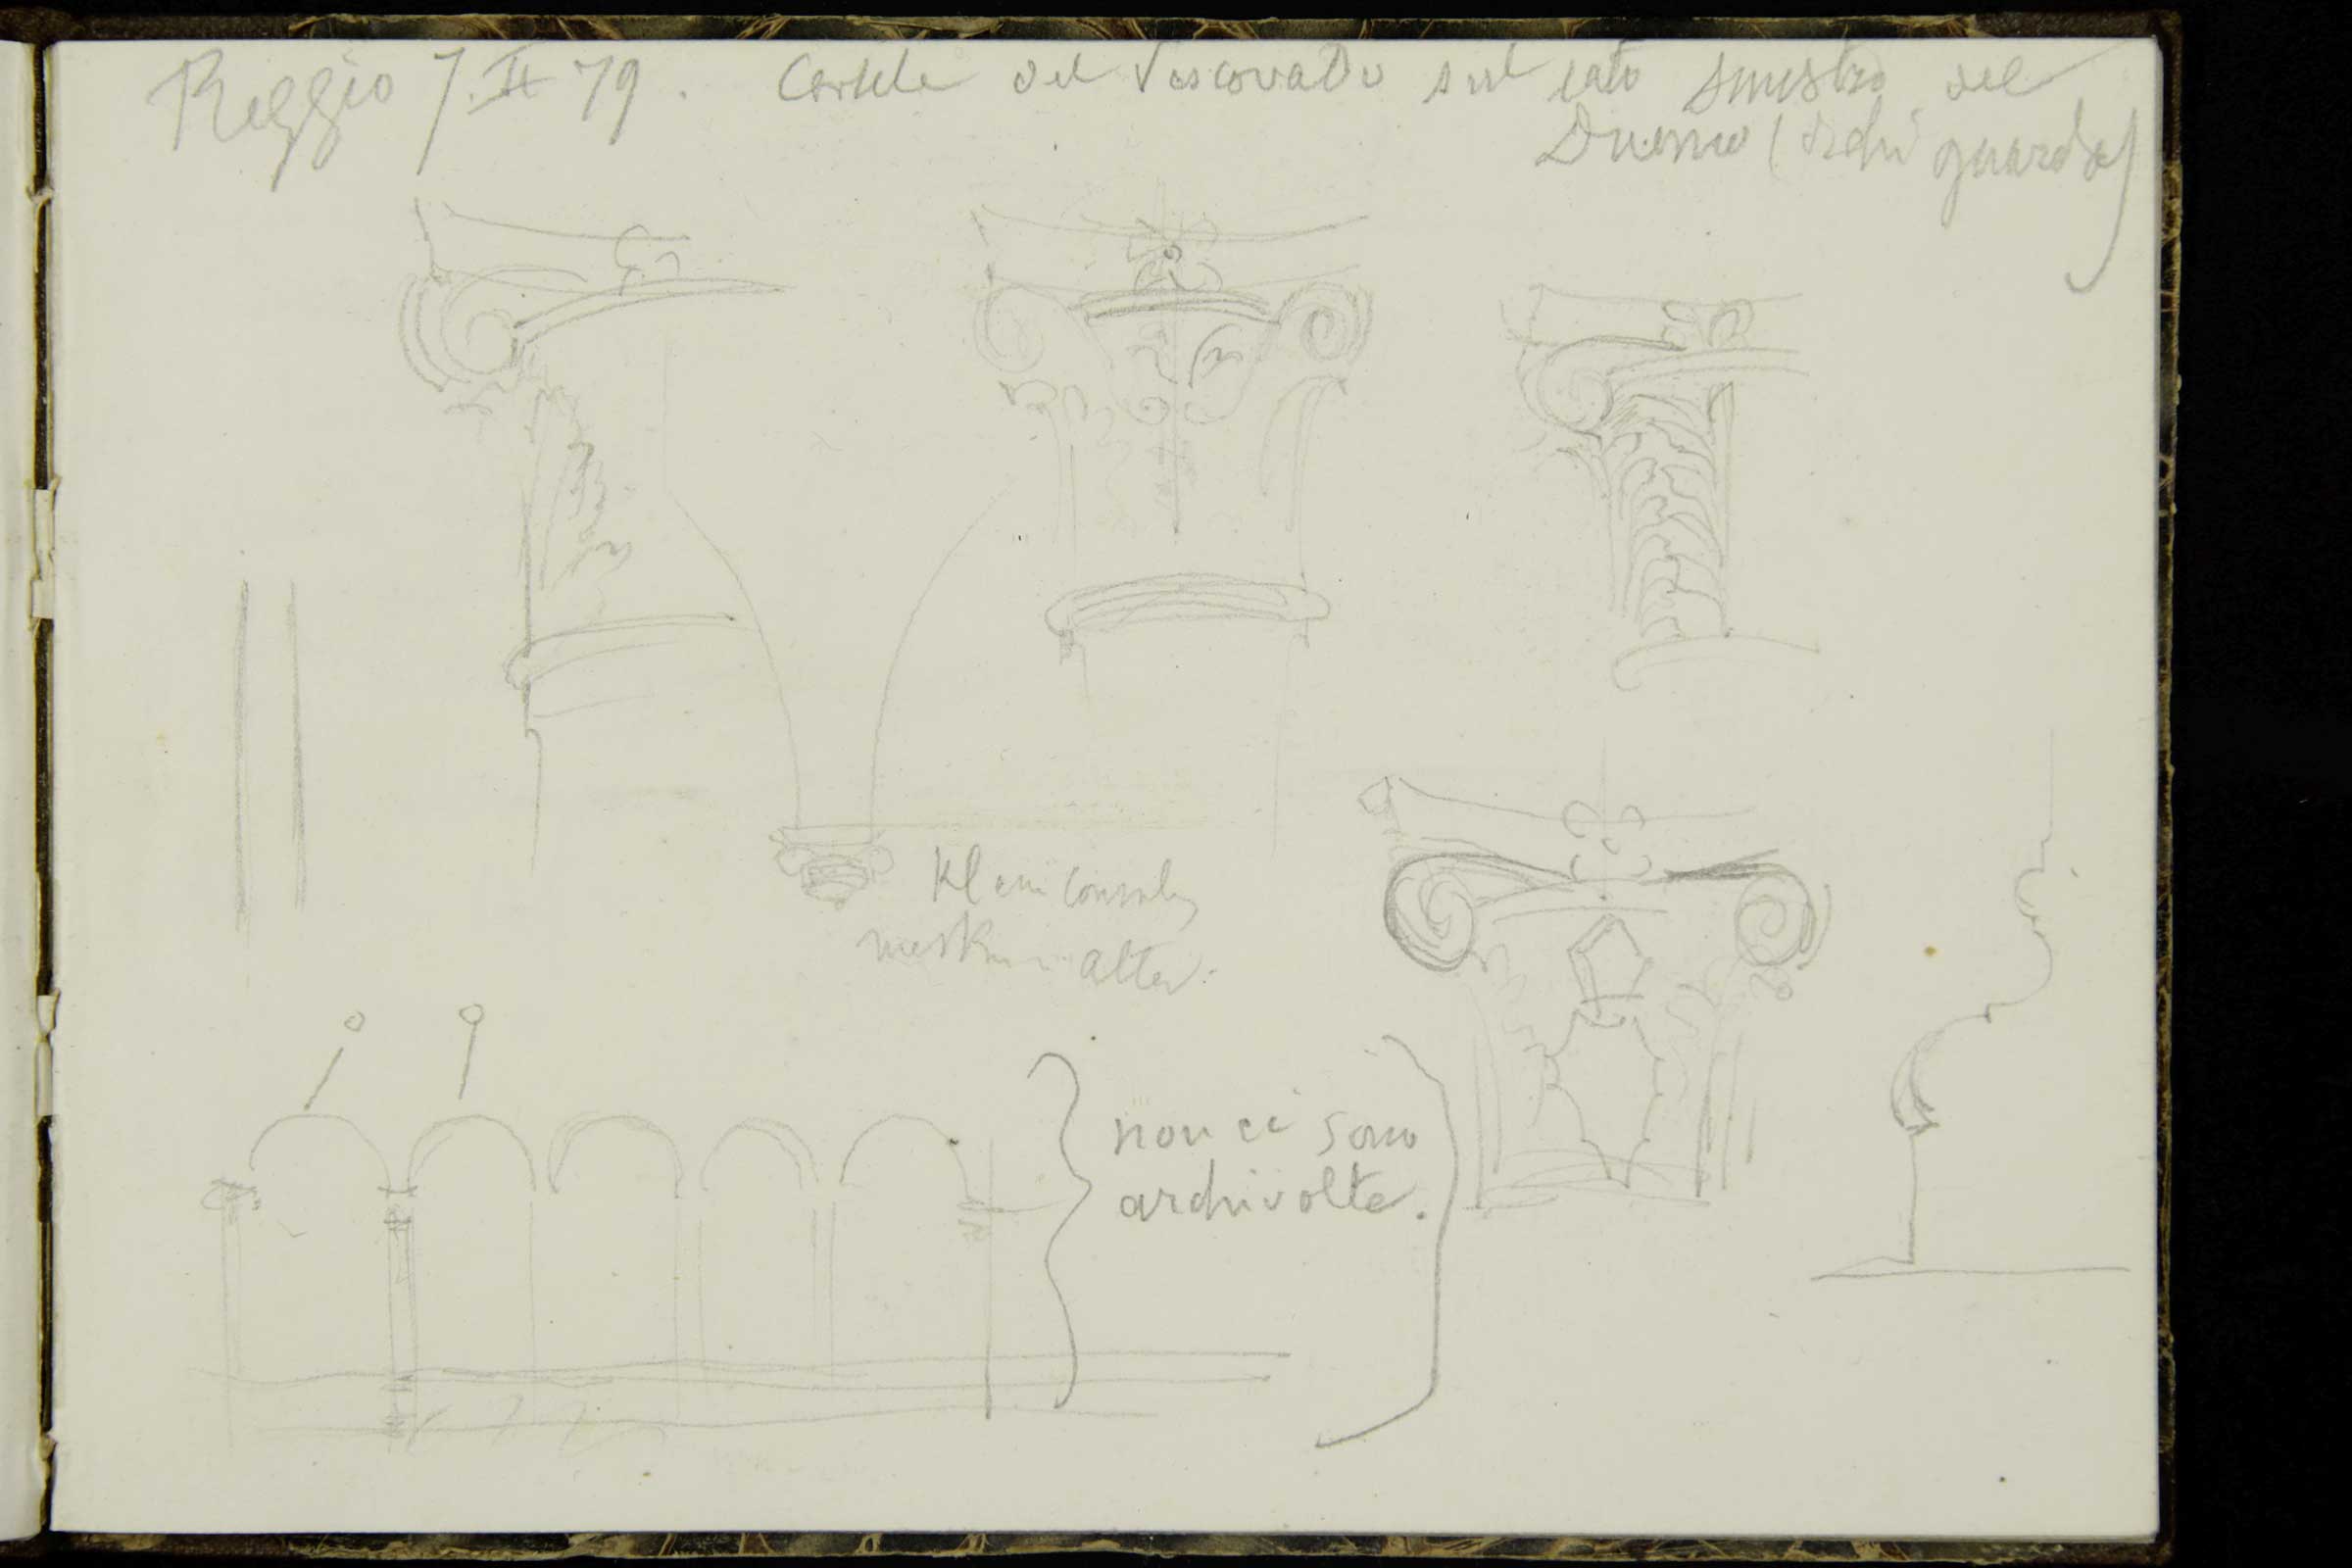 Reggio 7. II 79. Cortile del Vescovado sul lato sinistro del
Duomo (di chi guarda)
Klein
alter.
non ci sono
archivolte.